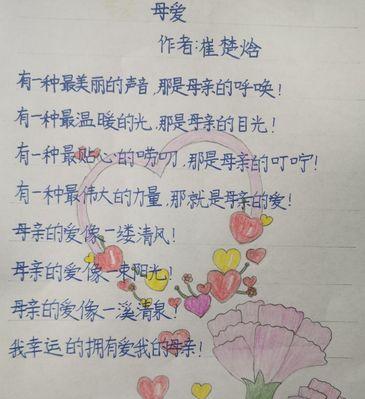 母爱
作者:崔楚焓
有一种最美丽的声音,那是母亲的呼唤!
有一种最温暖的光,那是母亲的目光!
有一种最贴心的唠叨,那是母亲的叮咛!
有一种最伟大的力量,那就是母亲的爱!
母亲的爱像一缕清风!
母亲的爱像一束阳光!
母亲的爱像一溪清泉!
我幸运的拥有爱我的母亲!